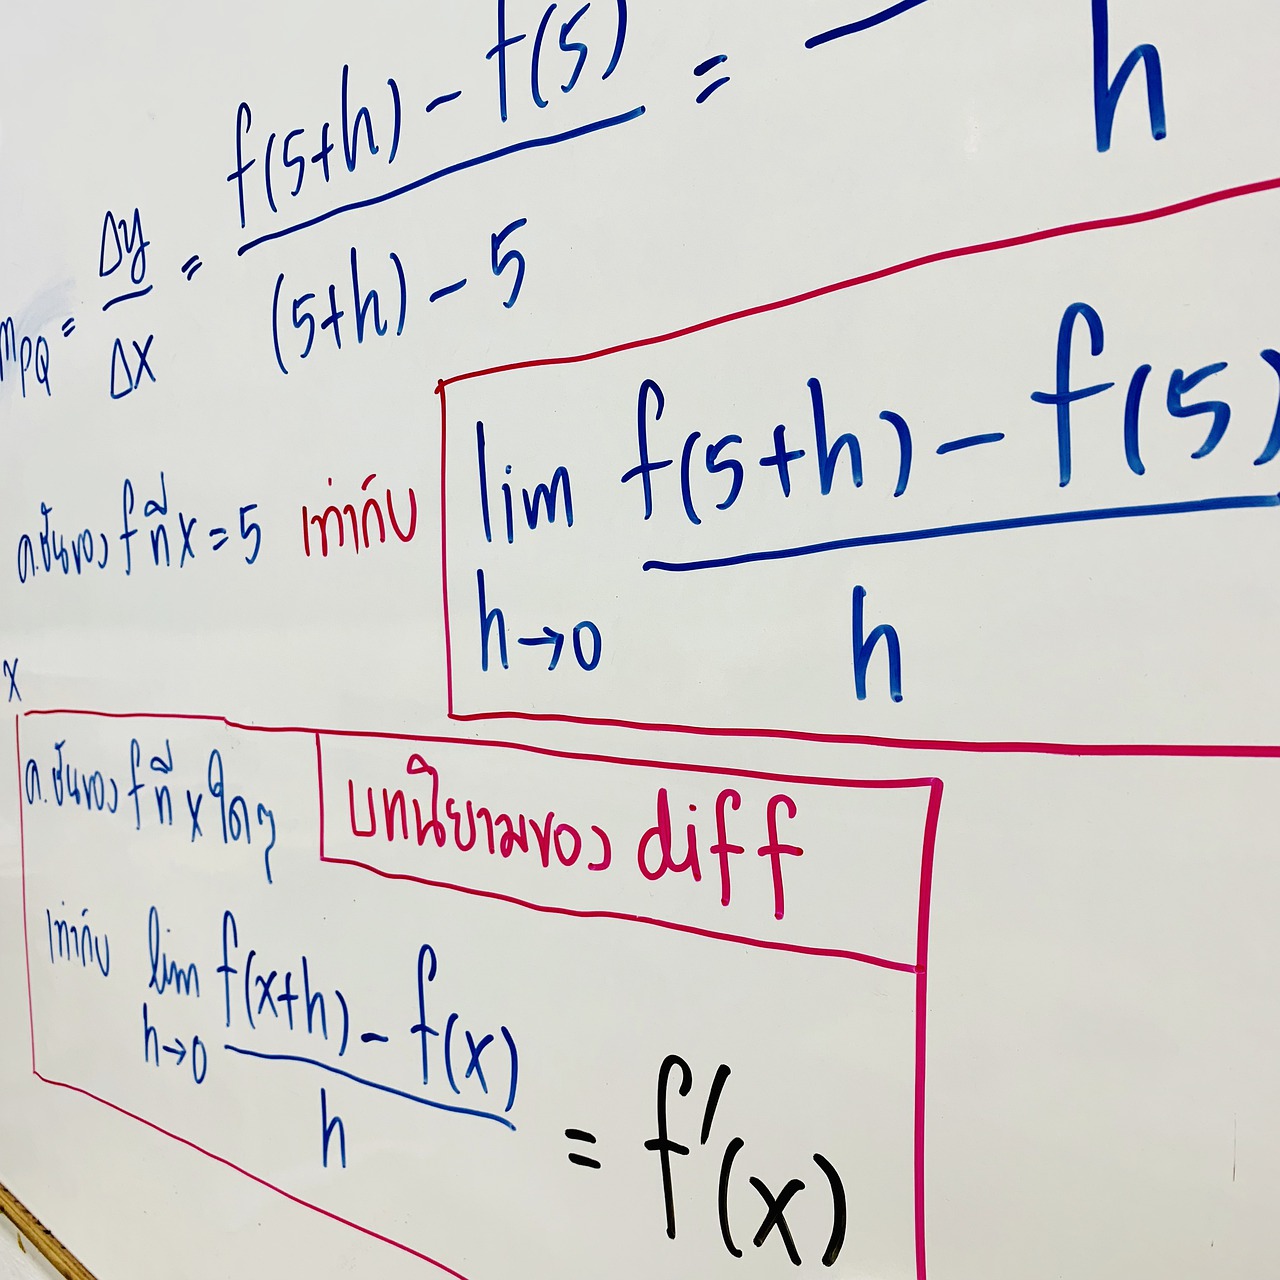 m_PQ = Δy/Δx = (f(5+h) - f(5))/((5+h) - 5) = —/h
ค.ชันของ f ที่ x = 5 เท่ากับ lim h→0 (f(5+h) - f(5))/h
x
ค.ชันของ f ที่ x ใดๆ
บทนิยามของ diff
เท่ากับ lim h→0 (f(x+h) - f(x))/h = f'(x)